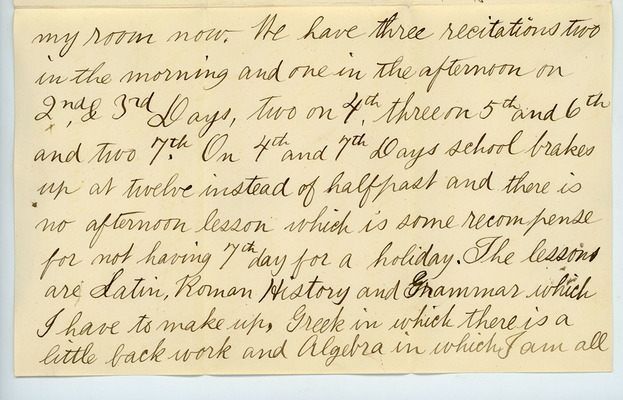 my room now. We have three recitations two
in the morning and one in the afternoon on
2nd, & 3rd Days, two on 4th, three on 5th and 6th
and two 7th. On 4th and 7th Days school brakes
up at twelve instead of half past and there is
no afternoon lesson which is some recompense
for not having 7th day for a holiday. The lessons
are Latin, Roman History and Grammar which
I have to make up, Greek in which there is a
little back work and Algebra in which I am all